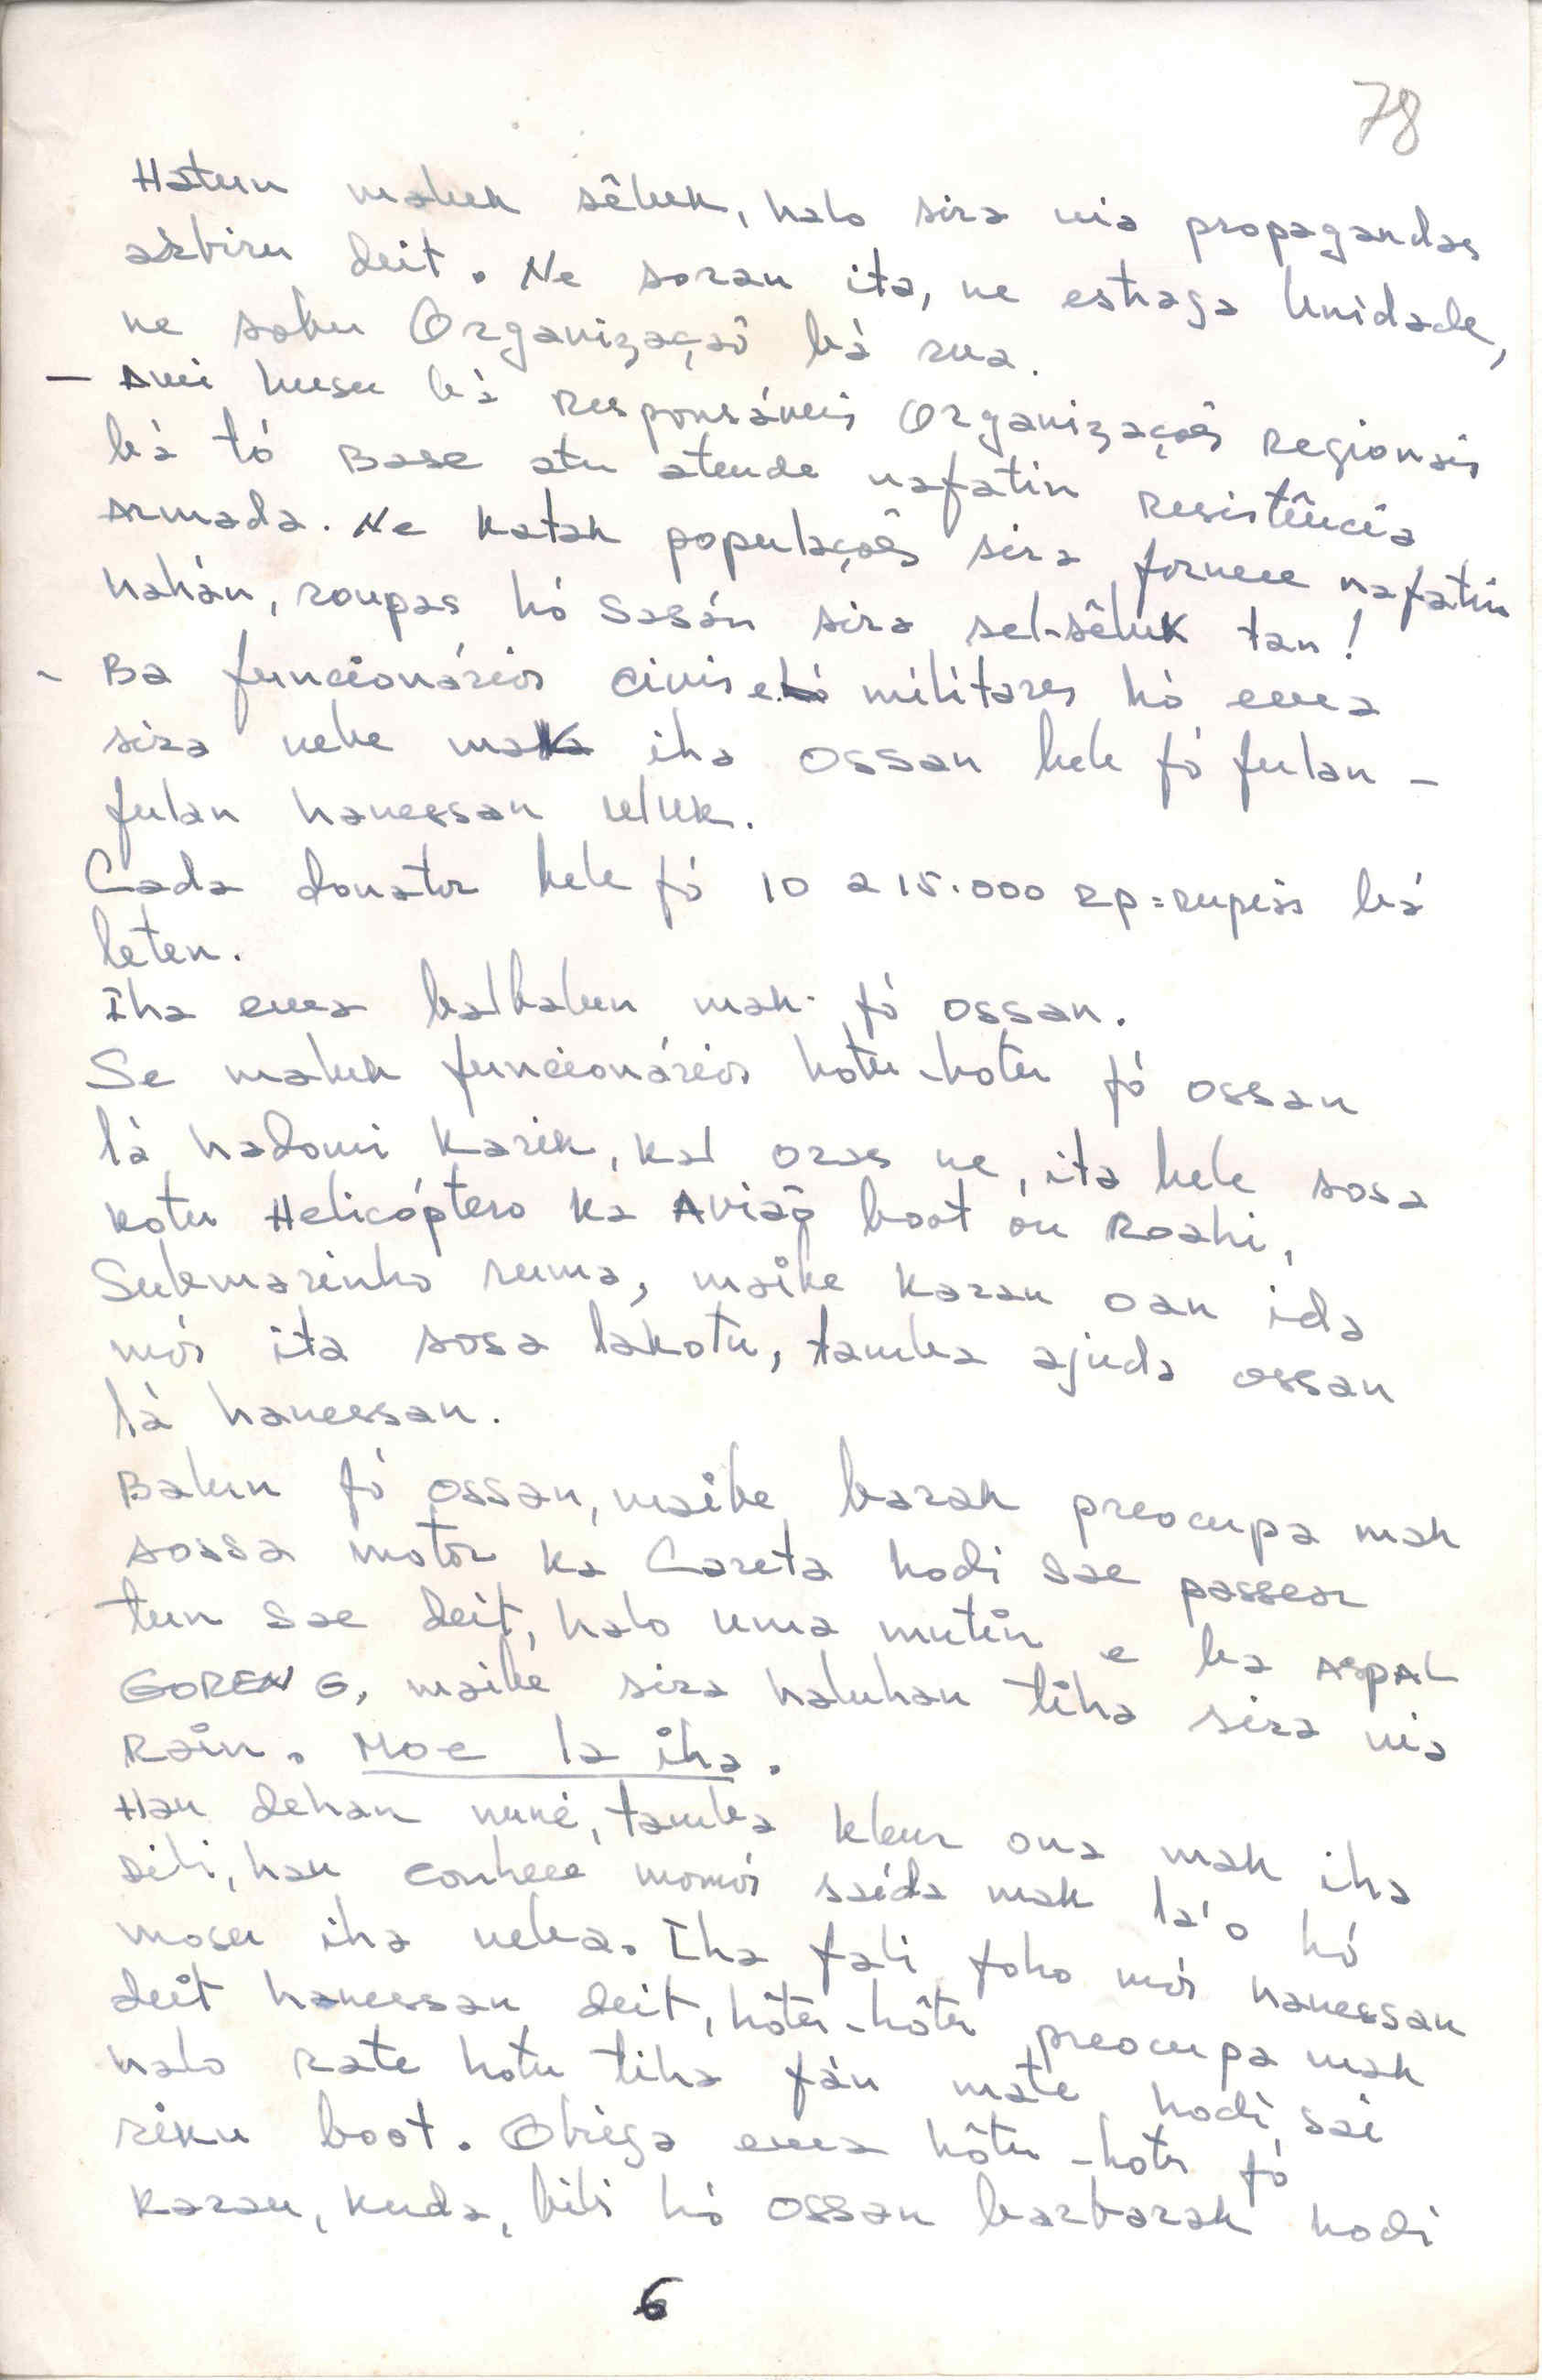 78
Hatun maluk sêluk, halo sira nia propagandas
arbiru deit. Ne soran ita, ne estraga Unidade,
ne sobu Organizaçaõ bá rua.
- Ami husu bá Responsáveis Organizações Regionais
bá tó Base atu atende nafatin Resistência
Armada. Ne katak populações sira fornece nafatin
hahán, roupas hó Sasán sira sel-sêluk tan!
- Ba funcionários civis e militares hó ema
sira nebe mak iha ossan bele fó fulan -
fulan hanessan uluk.
Cada donator bele fó 10 a 15.000 Rp=rupias bá
leten.
Iha ema balbalun mak fó ossan.
Se maluk funcionários hotu-hotu fó ossan
lá hadomi karik, kal oras ne, ita bele sosa
kotu Helicóptero ka Avião boot ou Roahi,
Submarinho ruma, maibe karau oan ida
mós ita sosa lakotu, tamba ajuda ossan
lá hanessan.
Balun fó ossan, maibe barak preocupa mak
sossa motor ka Careta hodi sae passear
tun sae deit, halo uma mutin e ba AspAL
GORENG, maibé sira haluhan tiha sira nia
Rain. Moe la iha.
Hau dehan nuné, tamba kleur ona mak iha
sili, hau conhece momós saída mak la'o hó
mosu iha neba. Iha fali foho mós hanessan
deit hanessan deit, hôtu-hôtu preocupa mak
halo rate hotu tiha fán mate hodi sai
riku boot. Obriga ema hôtu-hotu fó
karau, kuda, bibi hó ossan barbarak hodi
6